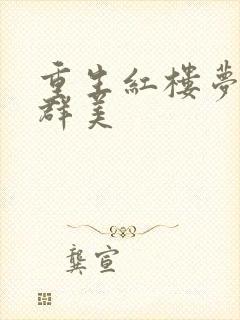 重生紅樓夢
群美
龔宣